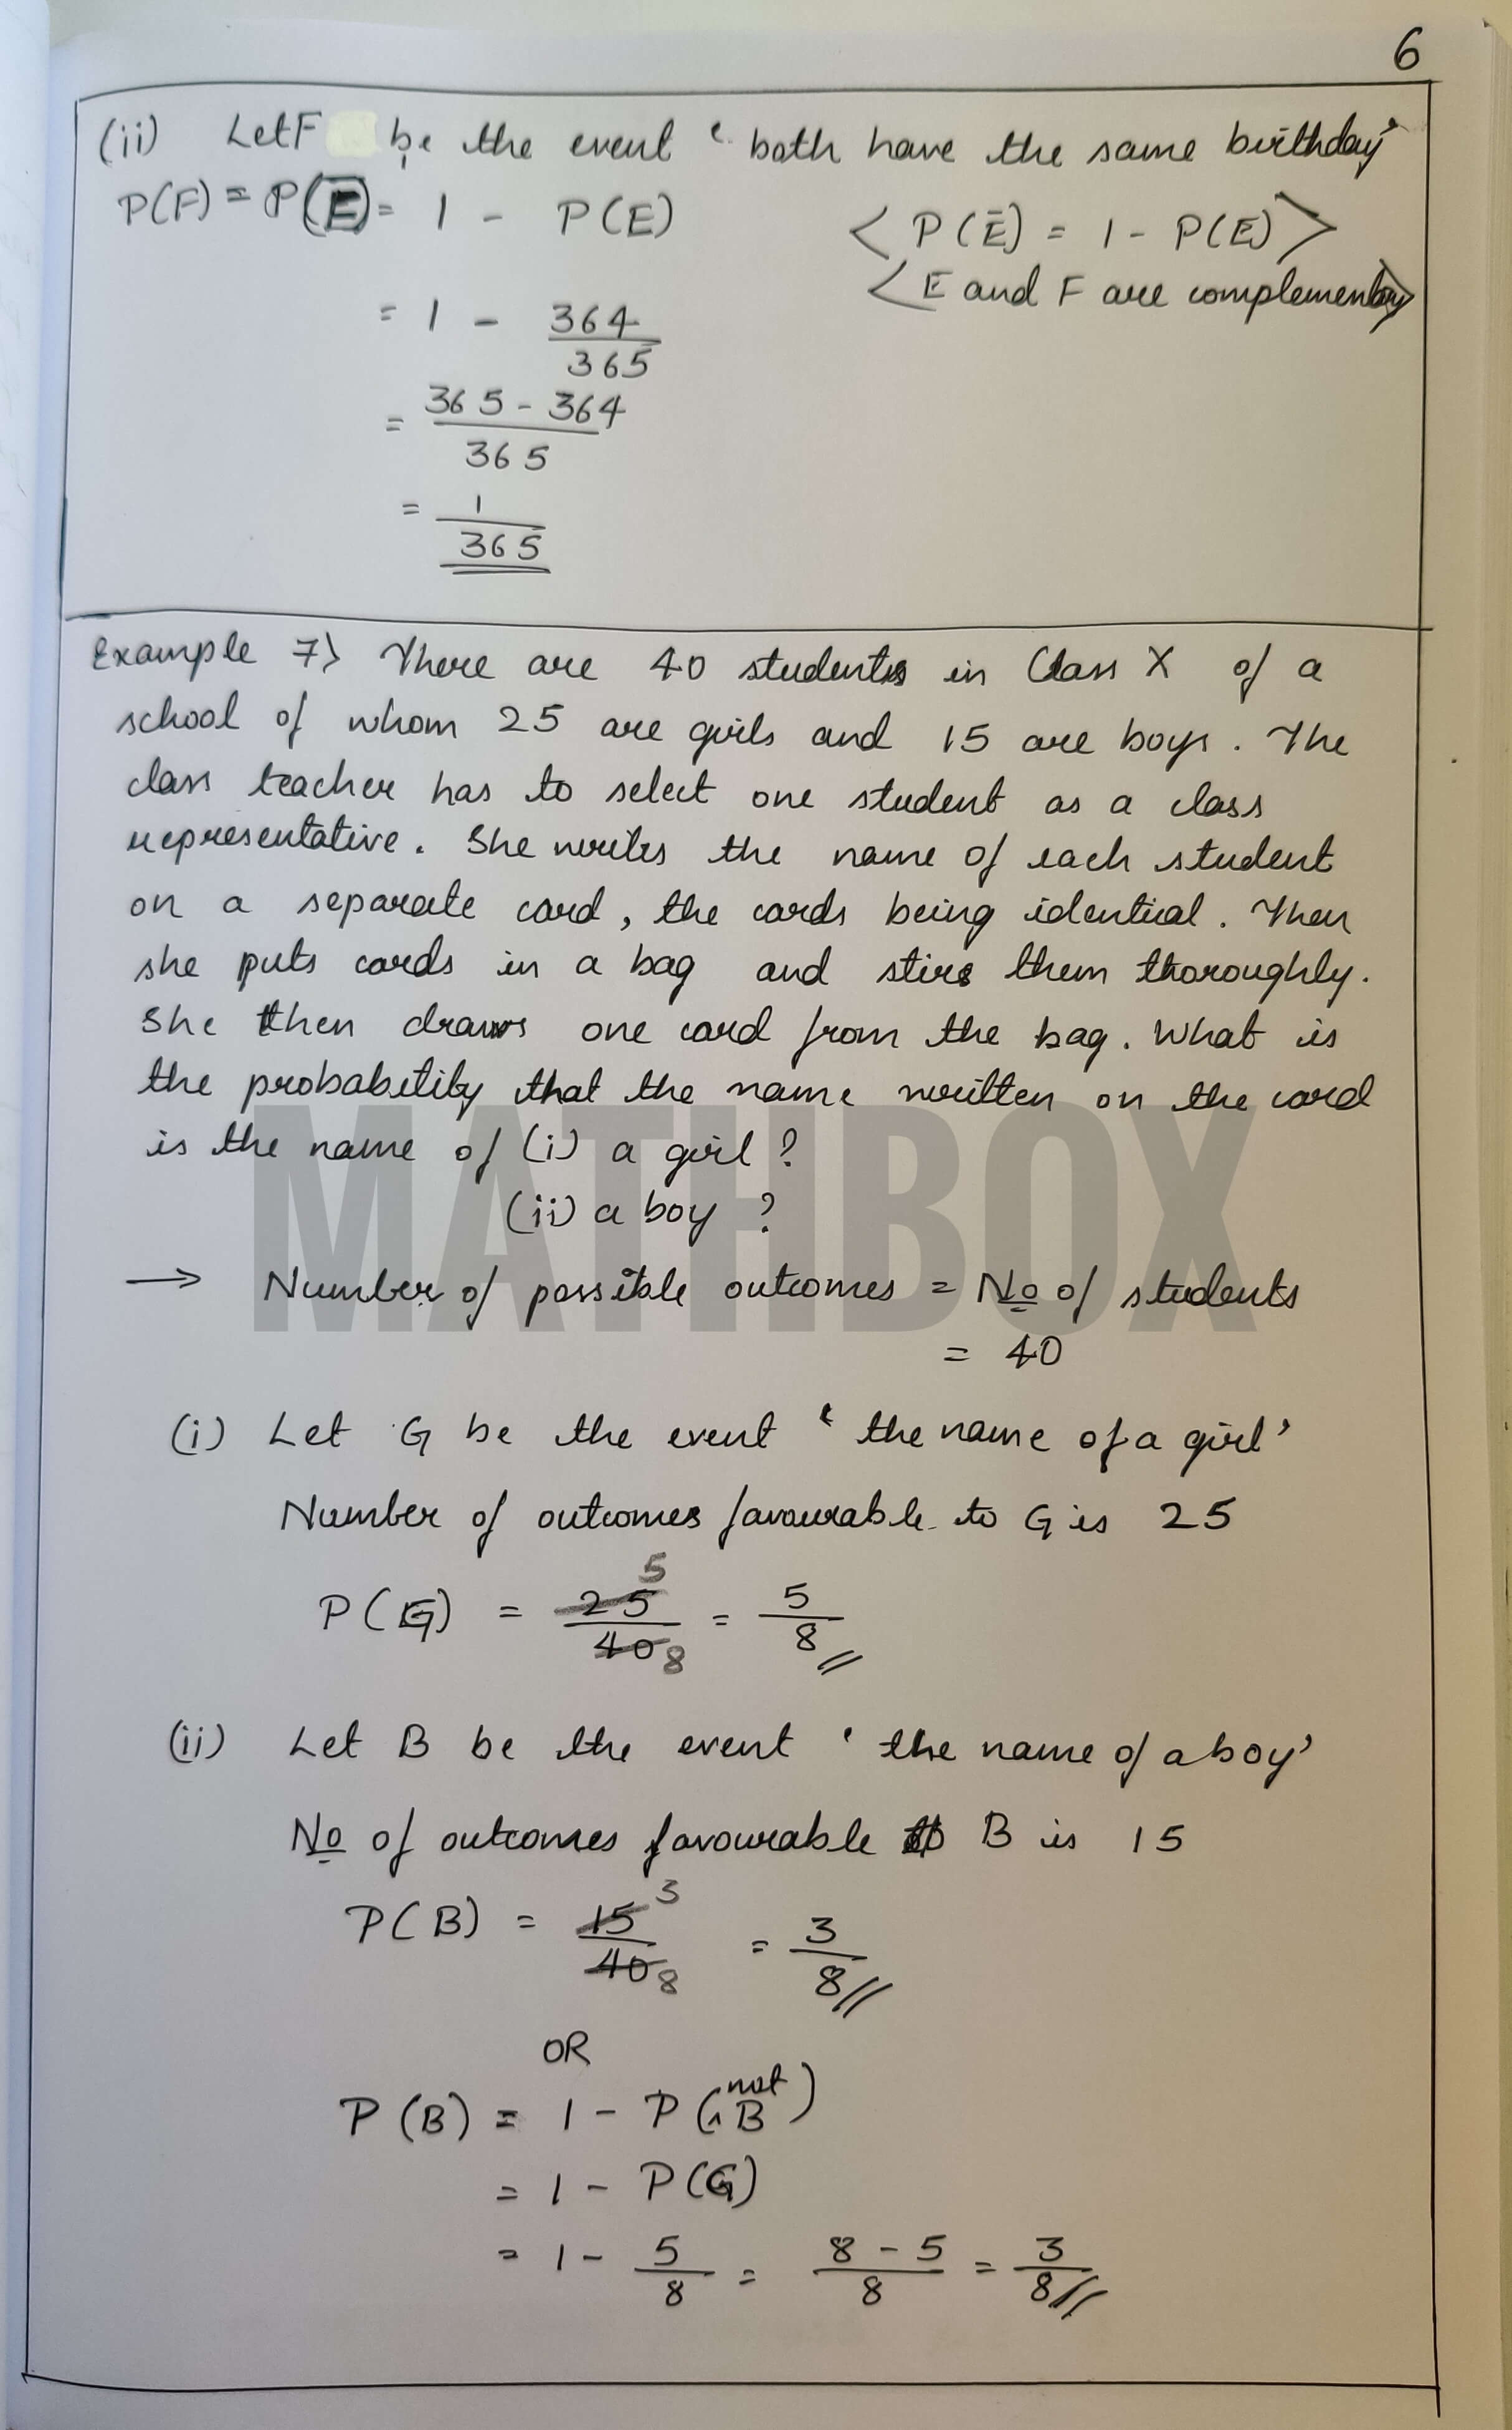 6
(ii) Let F be the event ' both have the same birthday'
P(F) = P(E̅) = 1 - P(E) < P(Ē) = 1 - P(E) >
< E and F are complementary >
= 1 - 364/365
= 365 - 364/365
= 1/365
Example 7> There are 40 students in Class X of a
school of whom 25 are girls and 15 are boys. The
class teacher has to select one student as a class
representative. She writes the name of each student
on a separate card, the cards being identical. Then
she puts cards in a bag and stirs them thoroughly.
She then draws one card from the bag. What is
the probability that the name written on the card
is the name of (i) a girl?
(ii) a boy?
→ Number of possible outcomes = No of students
= 40
MATHBOX
(i) Let G be the event ' the name of a girl'
Number of outcomes favourable to G is 25
P(G) = 25 5/40 8 = 5/8
(ii) Let B be the event ' the name of a boy'
No of outcomes favourable to B is 15
P(B) = 15 3/40 8 = 3/8
OR
P(B) = 1 - P(not B)
= 1 - P(G)
= 1 - 5/8 = 8 - 5/8 = 3/8